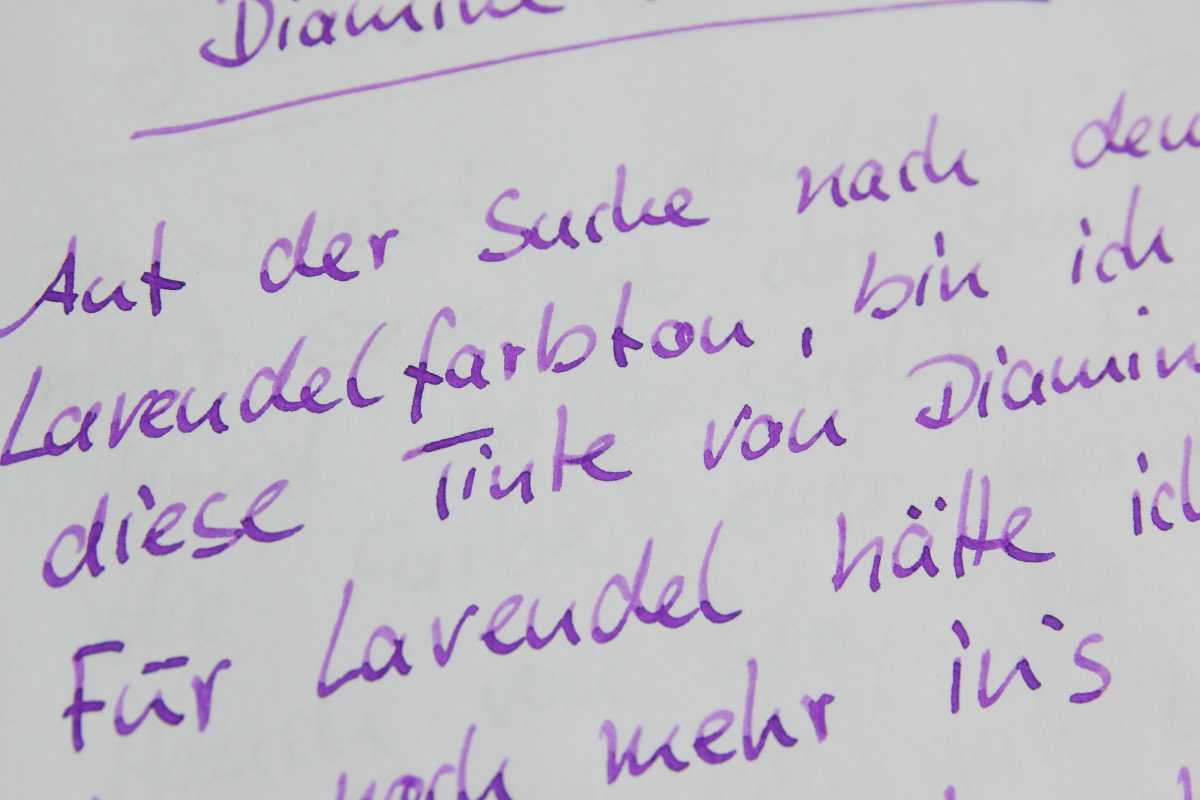 Diamine
Auf der Suche nach dem
Lavendelfarbton, bin ich
diese Tinte von Diamin
Für Lavendel hätte ich
noch mehr in's